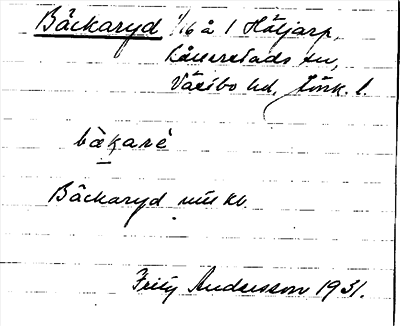 Bäckaryd 1/16 å 1 Höljarp,
Lånnerstads sn,
Västbo hd, Jönk. l.
bækaré
Bäckaryd mtl kb.
Fritz Andersson 1931.